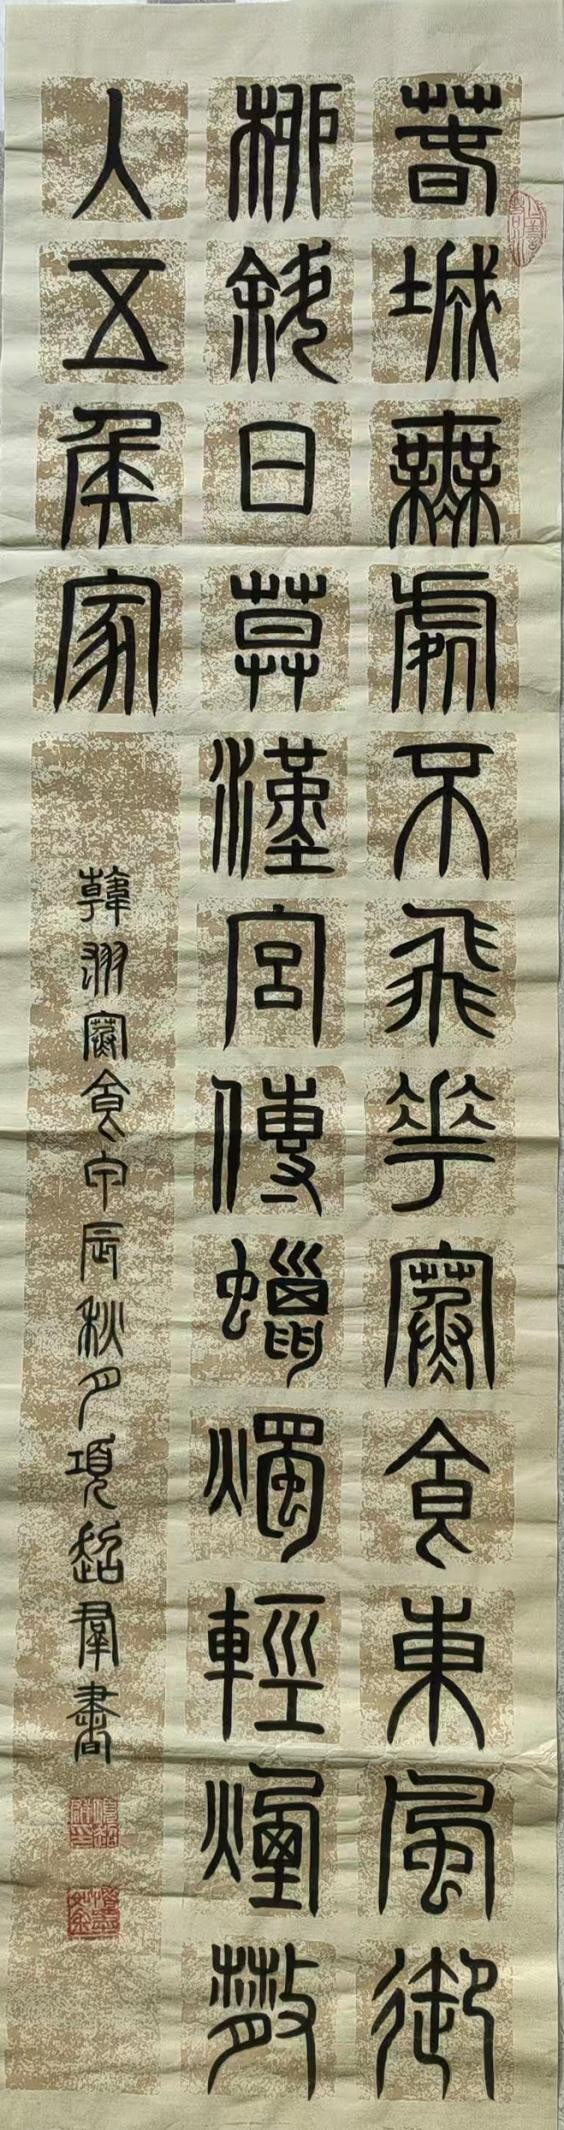 春城無處不飛花寒食東風御
柳斜日暮漢宮傳蠟燭輕煙散
人五侯家
韓翃寒食甲辰秋月項超群書